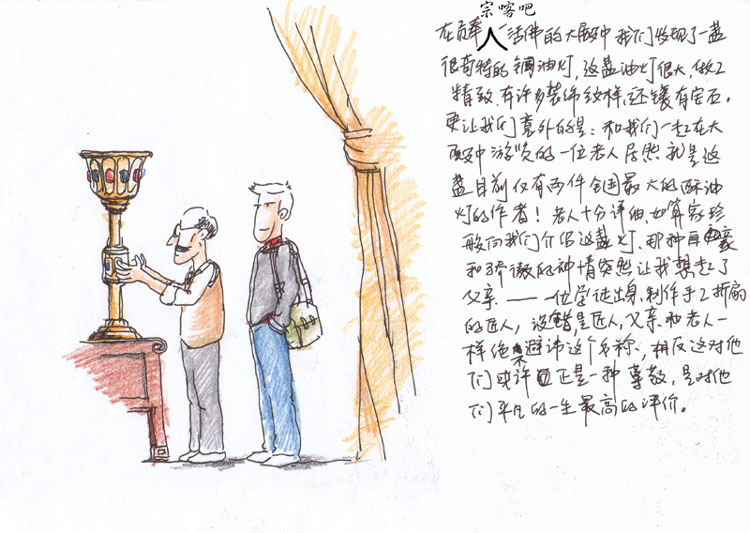 宗喀巴
在贡奉人活佛的大殿中我们发现了一盏
很奇特的铜油灯,这盏油灯很大,做工
精致,有许多装饰纹样,还镶有宝石。
更让我们意外的是:和我们一起在大
殿中游览的一位老人居然就是这
盏目前仅有两件全国最大的酥油
灯的作者!老人十分详细,如算家珍
般向我们介绍这盏灯,那种自豪
和骄傲的神情突然让我想起了
父亲——一位学徒出身,制作手工折扇
的匠人,没错是匠人,父亲和老人一
样绝不避讳这个名称,相反这对他
们或许正是一种尊敬,是对他
们平凡的一生最高的评价。